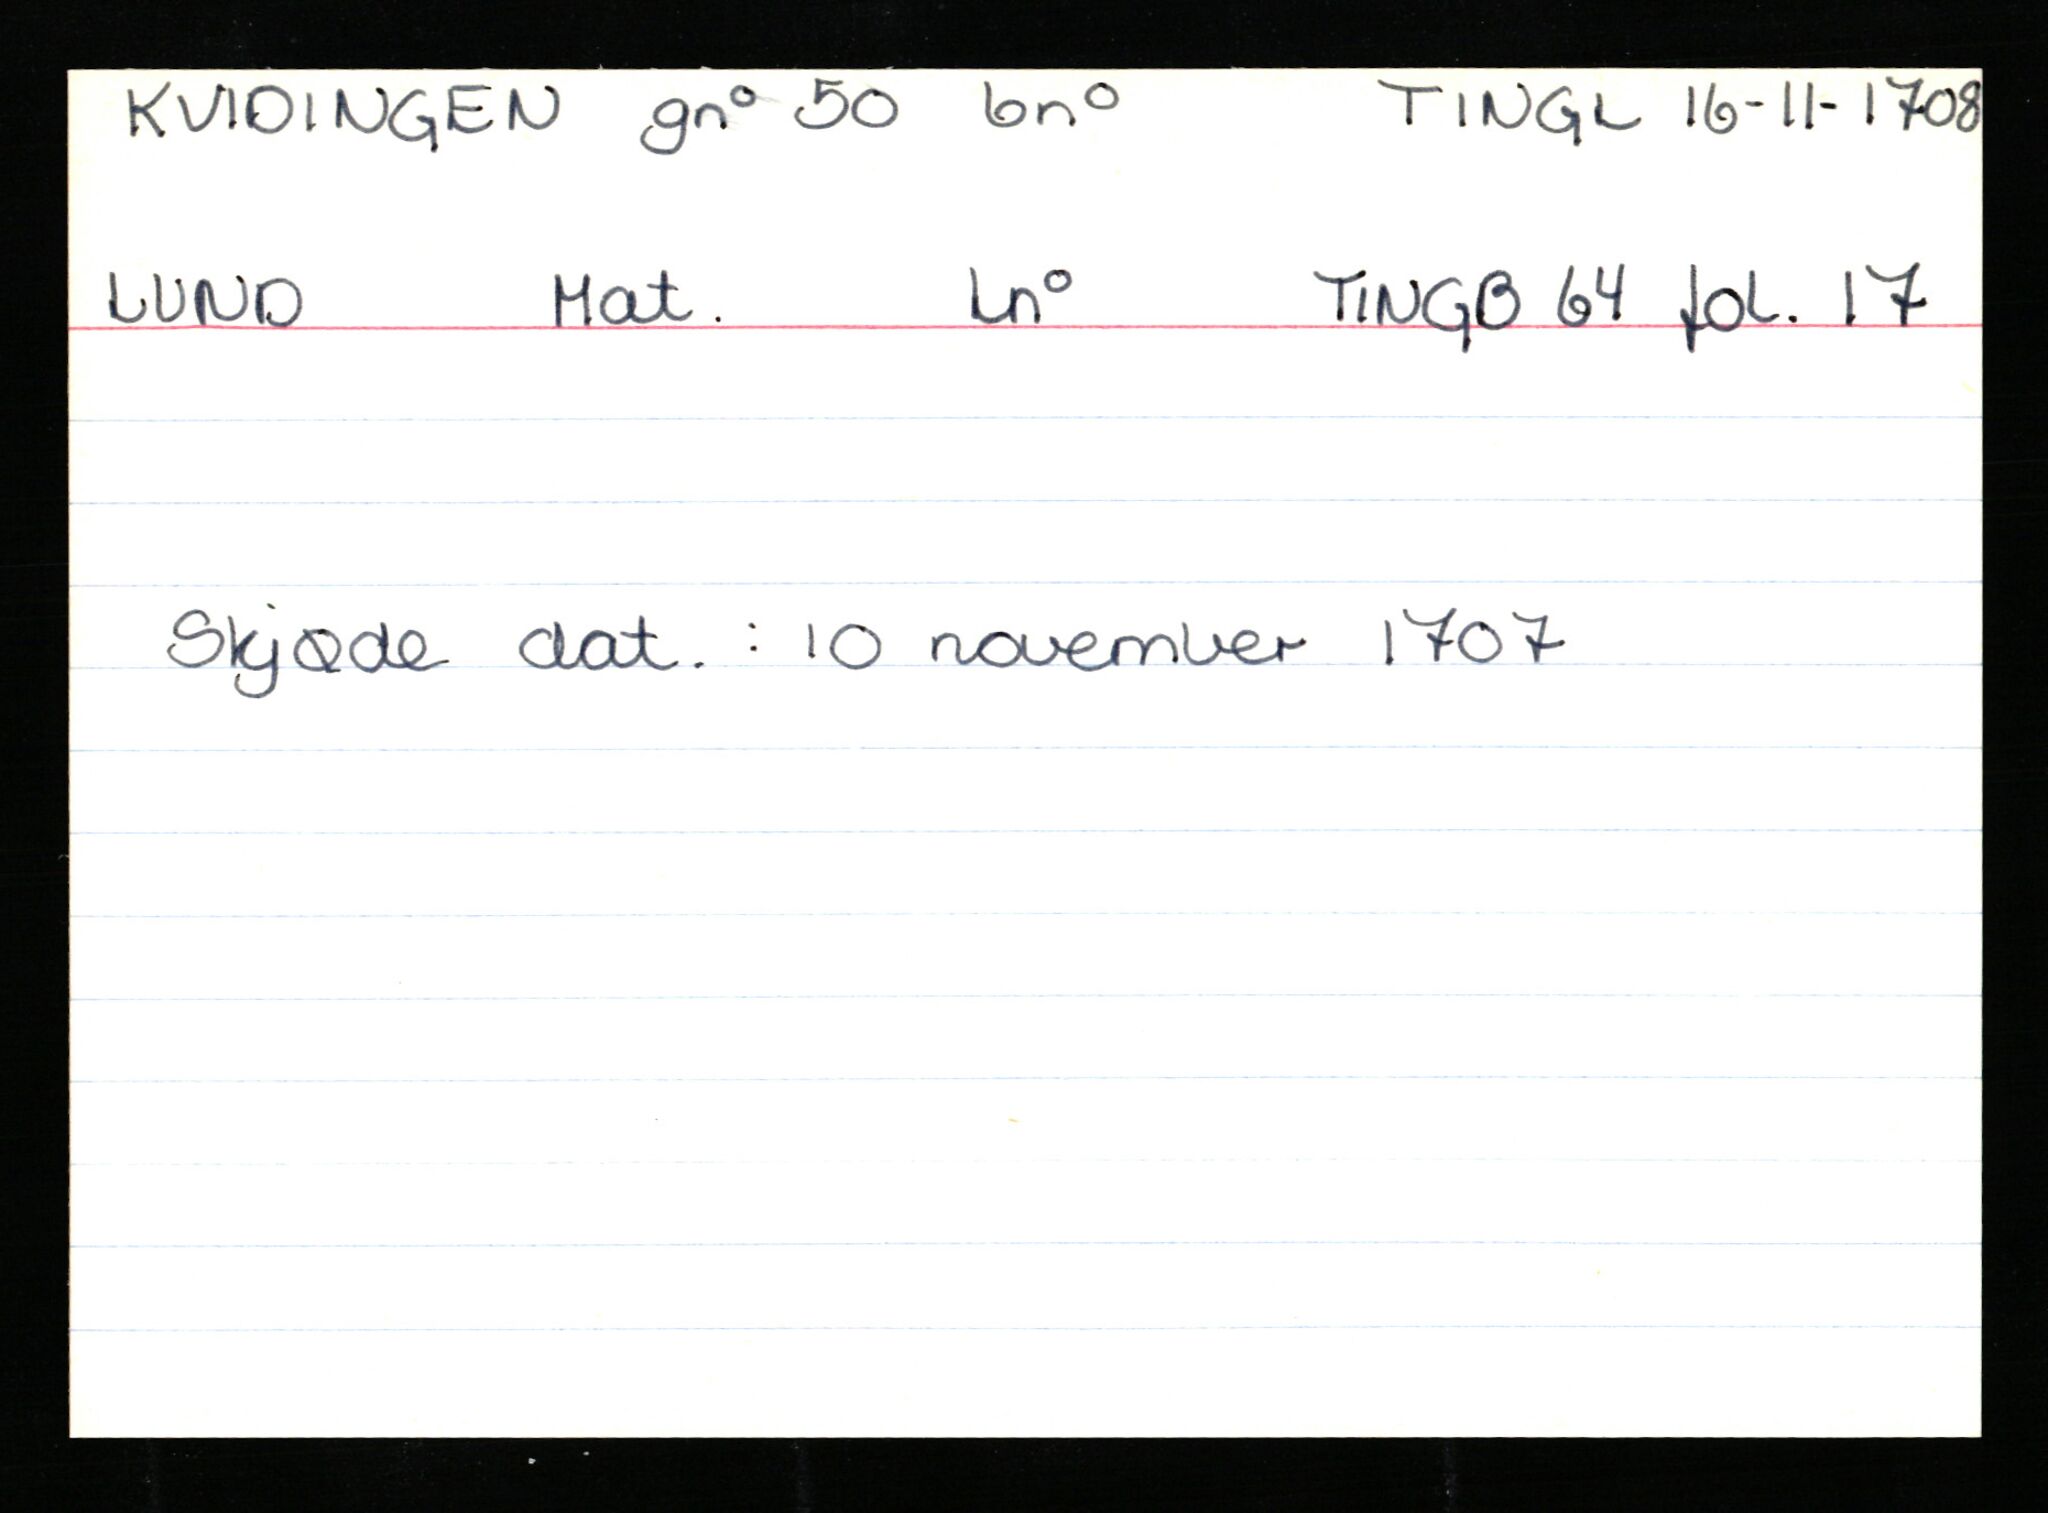 KVIDINGEN gnº 50 bnº TINGL 16-11-1708
LUND Mat. Lnº TINGB 64 fol. 17
Skjøde dat. : 10 november 1707